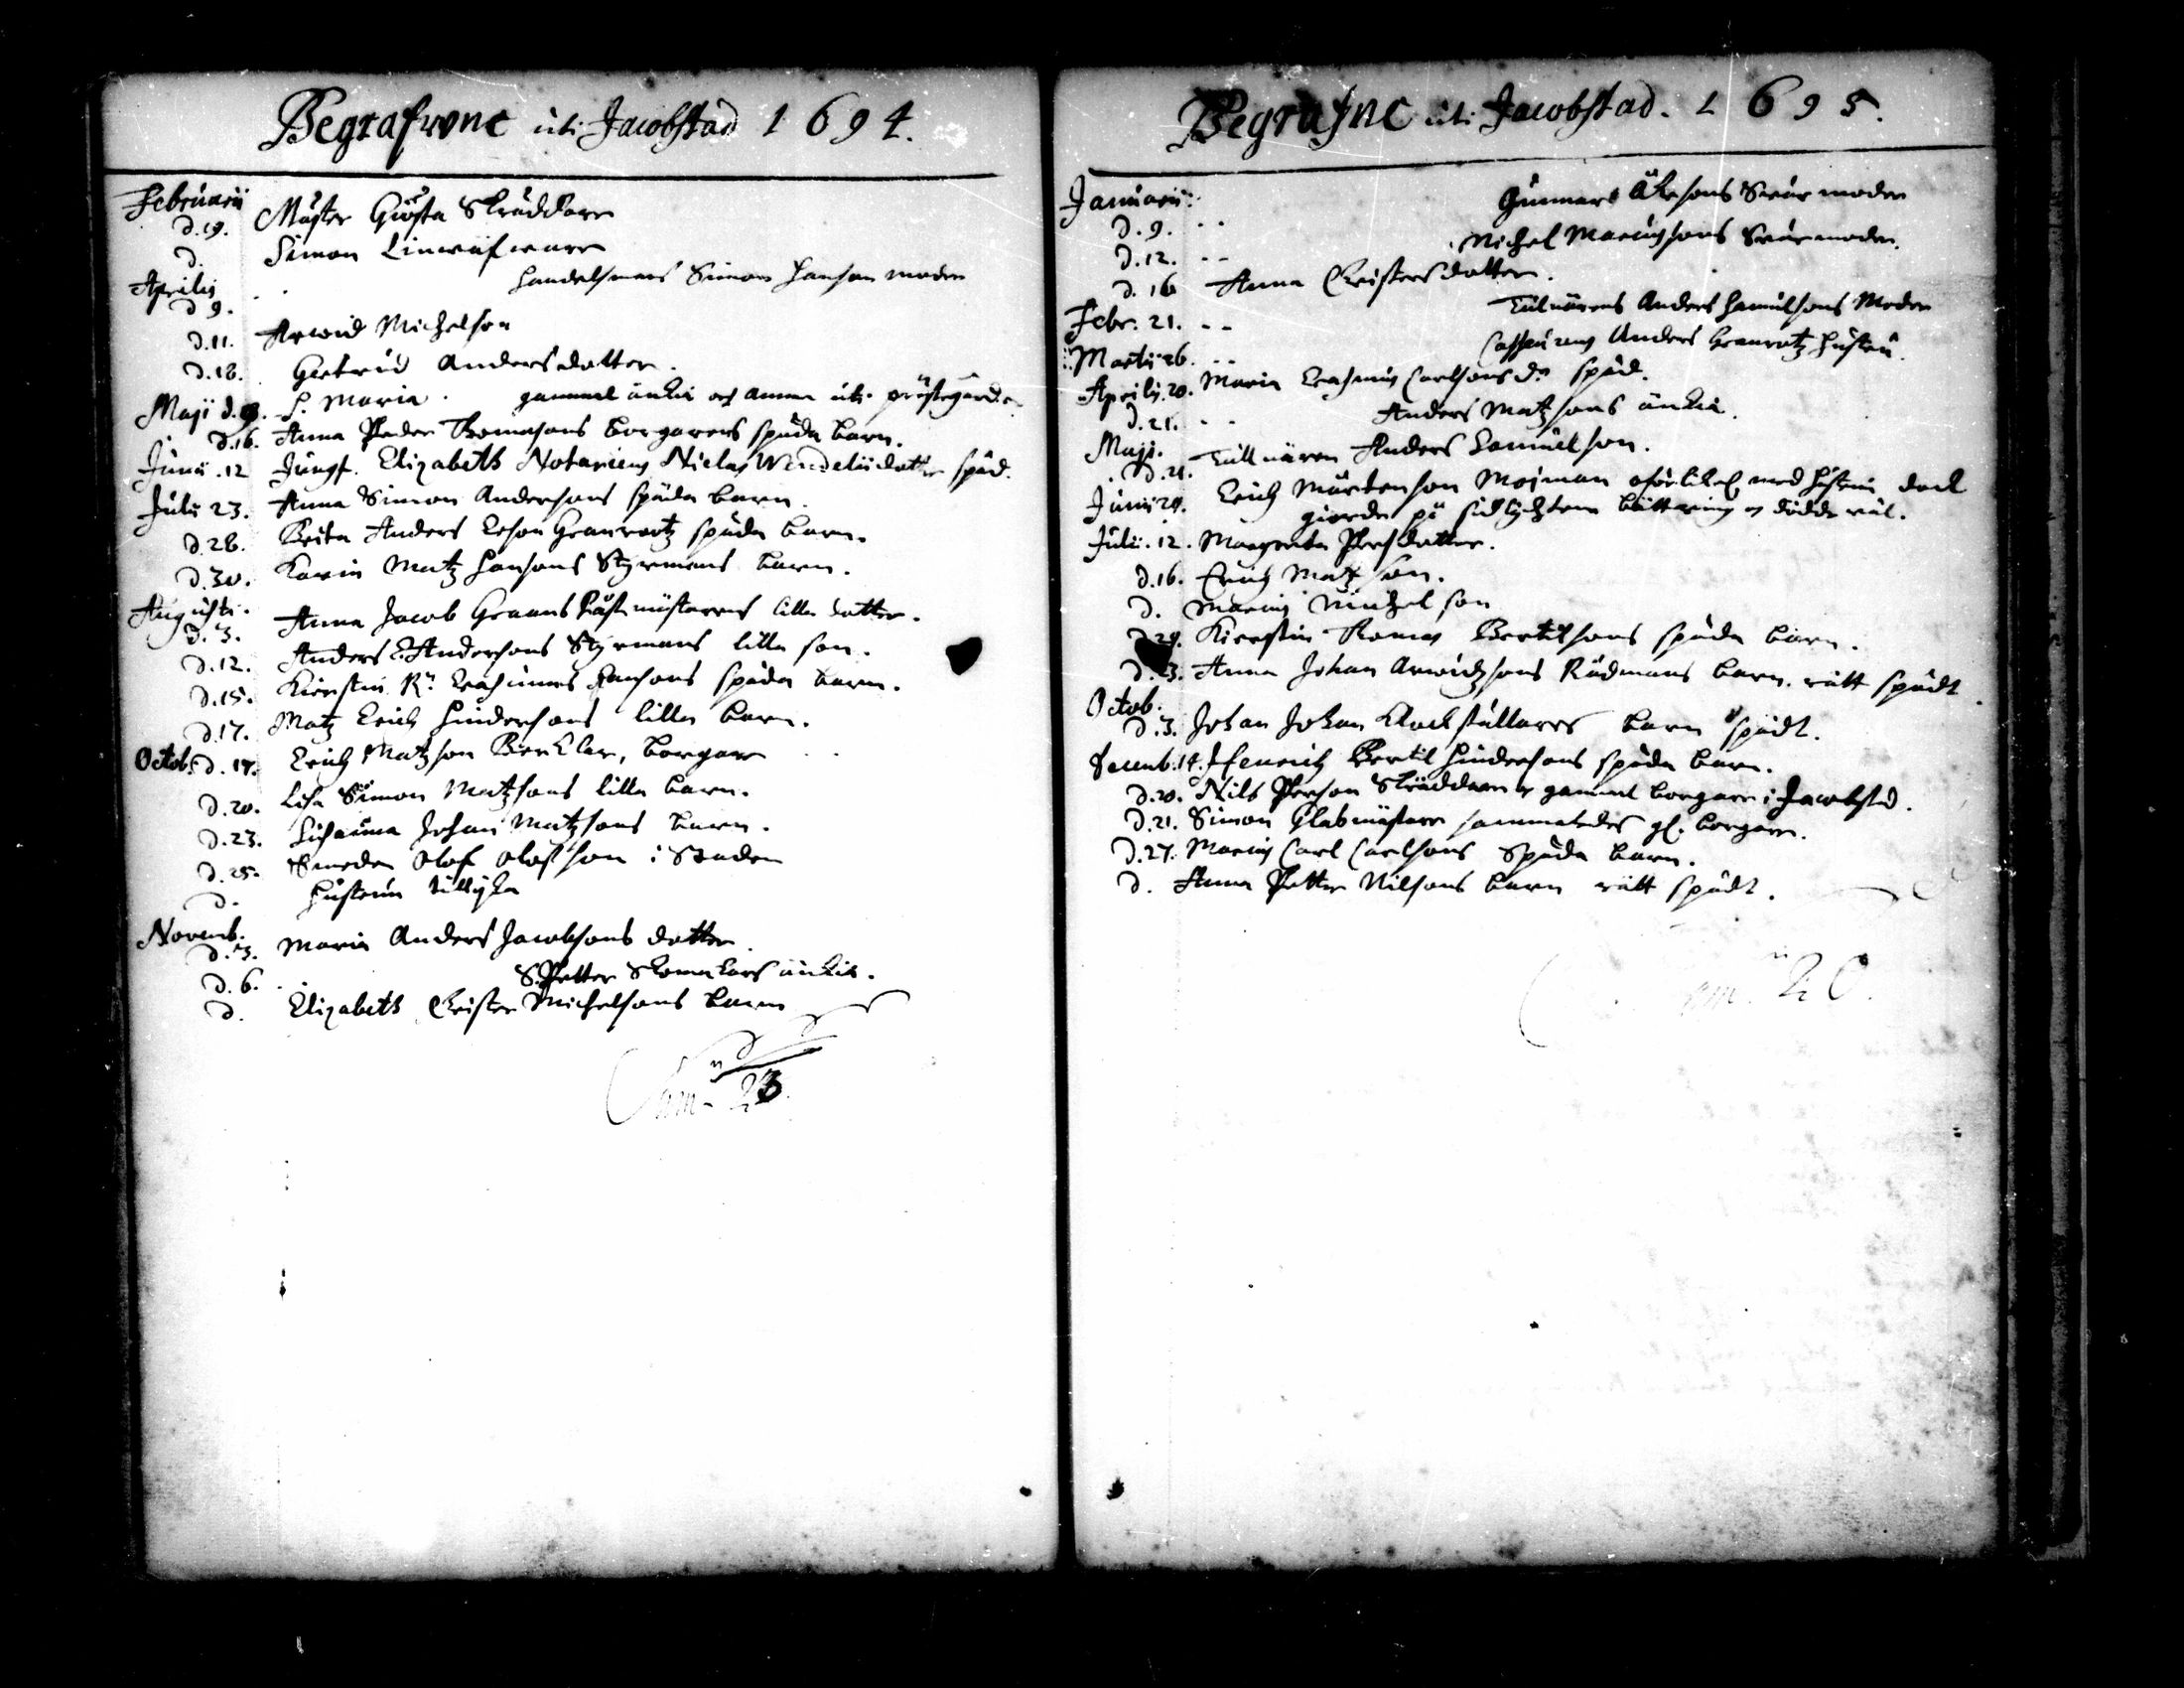 Begrafwne uti Jacobstad 1694.
Februarii
d. 19. Mäster Giösta Skräddare
d. Simon Linwäfware
Aprilis
d 9. . . handelsmans Simon Hansons moder
d. 11. Arwid Michelson
d. 18. Giertrud Andersdotter.
Maji d. 9. S. Maria. gammal änkia och amma uti prästegården.
d. 16. Anna Peder Thomasons borgarens späda barn.
Junii. 12 Jungf. Elizabeth Notariens Niclas Wendelii dotter späd.
Julii 23. Anna Simon Andersons späda barn.
d. 28. Brita Anders Granrootz späda barn.
d. 30. Karin Matz Hansons Styrmans barn.
Augusti.
d. 3. Anna Jacob Graans Påstmästarens lilla dotter.
d. 12. Anders E. Andersons Styrmans lilla son.
d. 15. Kierstin Erasmus Hansons späda barn.
d. 17. Matz Erich Hindersons lilla barn.
Octob. d. 17. Erich Matzson borgare
d. 20. Lisa Simon Matzsons lilla barn.
d. 23. Susanna Johan Matzsons barn.
d. 25. Smeden Olof Olofson i Staden
d. hustrun tillijka
Novemb.
d. 3. Maria Anders Jacobsons dotter.
d. 6. . . S. Petter Skomakars änkia.
d. Elizabeth Christer Michelsons barn
Sum. 23.
Begrafne uti Jacobstad. 1695.
Januarii.
d. 9. . . Gunnars Åkesons Swärmoder
d. 12. . . Michel Marcussons Swärmoder.
d. 16 Anna Christersdotter.
Febr. 21. . . Tulnärens Anders Samuelsons Moder
Martii 26. . . Anders Granrotz hustru.
Aprilis. 20. Maria Erasmus Carlsons dr späd.
d. 21. . . Anders Matzsons änkia.
Maji.
d. 21. Tullnären Anders Samuelson.
Junii 29. Erich Mårtenson Mojman oförlikt med hustrun dock
giorde på bättring och dödde wäl.
Julii. 12. Margreta Persdotter.
d. 16. Erich Matzson.
d. Marcus Michelson
d. 29. Kierstin Thomas Bertilsons späda barn.
d. 23. Anna Johan Arwidzsons Rådmans barn. rätt spädt.
Octob.
d. 3. Johan Johan Klockställares barn spädt.
Decemb. 14. Henrich Bertil Hindersons späda barn.
d. 20. Nils Person Skräddare gammal borgare i Jacobstad.
d. 21. Simon Glasmästare sammaledes gl. borgare.
d. 27. Marcus Carl Carlsons Späda barn.
d. Anna Petter Nilsons barn rätt spädt.
Sum. 20.